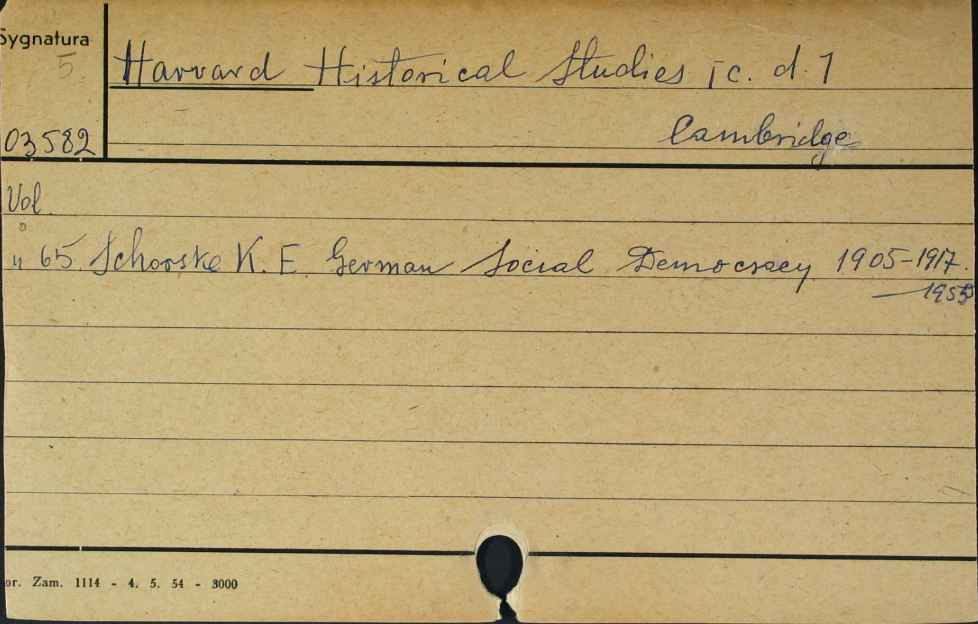 Sygnatura
5.
Harvard Historical Studies [c. d.]
03582
Cambridge
Vol.
" 65. Schorske K. E. German Social Democracy 1905-1917.
1955
or. Zam. 1114 - 4. 5. 54 - 3000